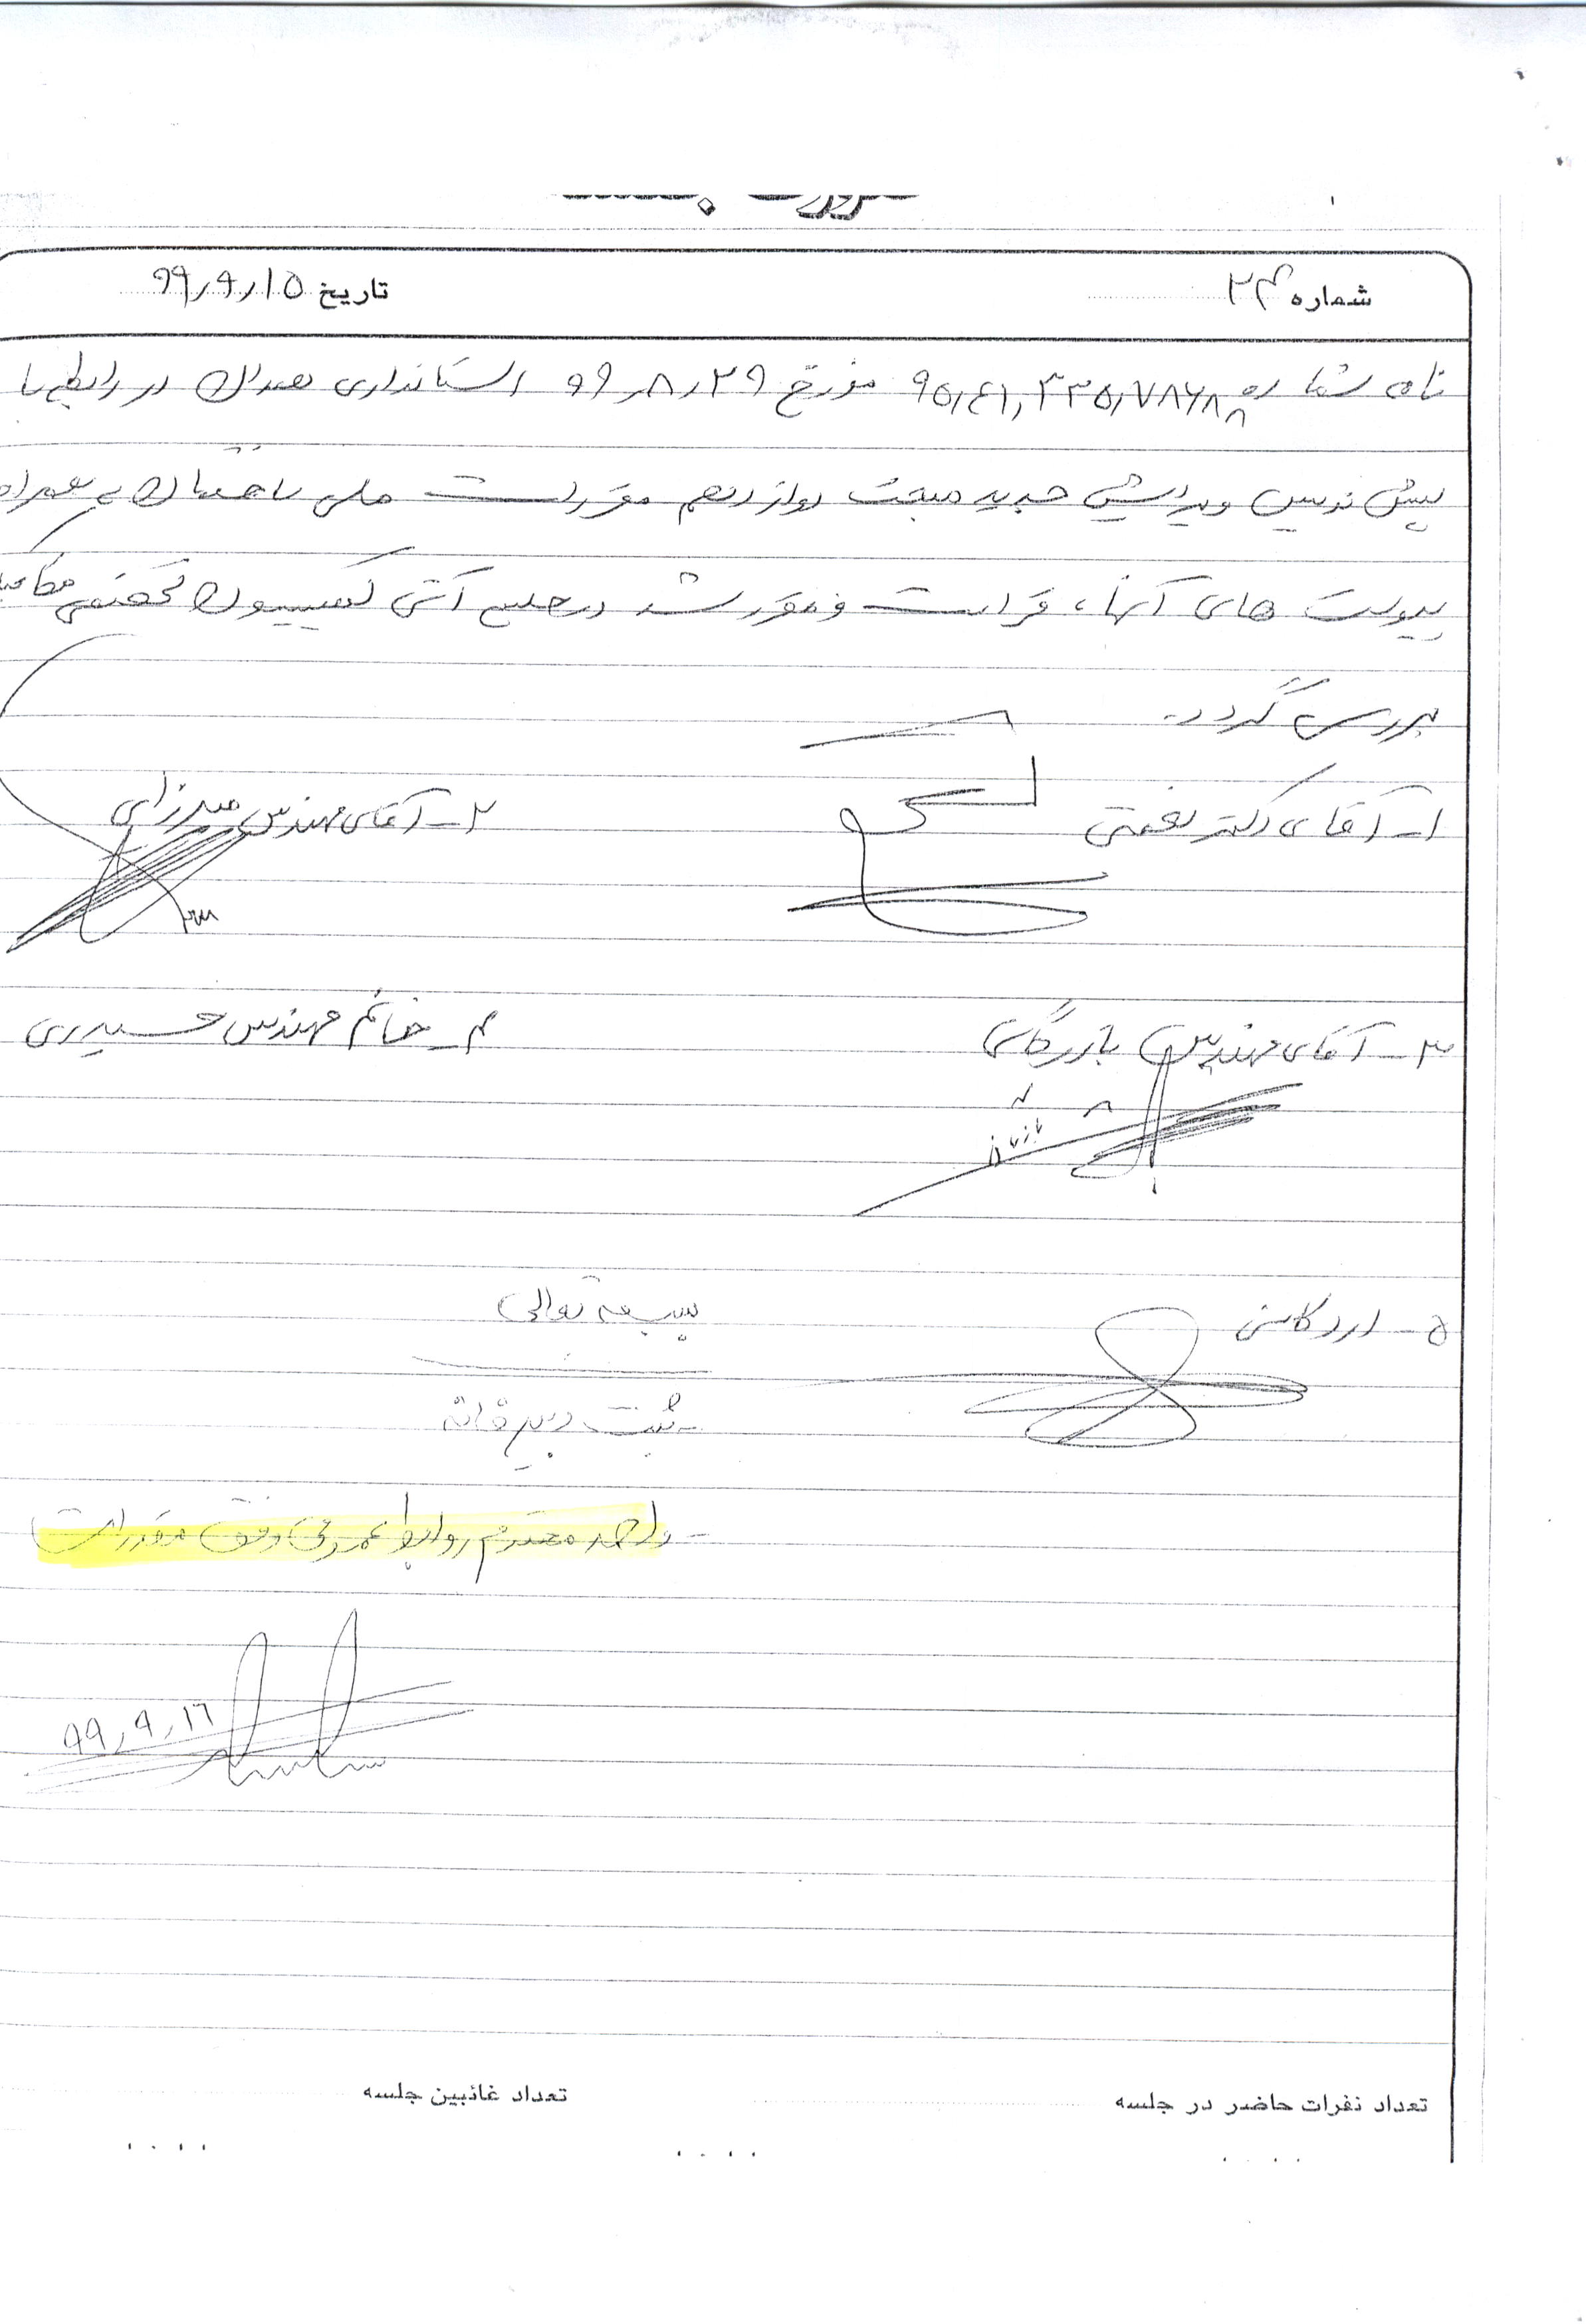 شماره ۲۴
تاریخ ۹۹٫۹٫۱۵
نامه شماره ۹۵٫۴۱٫۳۳۵٫۷۸۶۸۸ مورخ ۹۹٫۸٫۲۹ استانداری همدان در رابطه با
پیش نویس ویرایش جدید مبحث دوازدهم مقررات ملی ساختمان به همراه
پیوست های آنها، قرائت و مقرر شد در جلسه آتی کمیسیون تخصصی مکانیک
بررسی گردد.
۱- آقای دکتر نعمتی
۲- آقای مهندس میرزائی
۳- آقای مهندس بازرگان
۴- خانم مهندس حیدری
۵- اردکانی
بسمه تعالی
- ثبت دبیرخانه
- واحد محترم روابط عمومی وفق مقررات
۹۹٫۹٫۱۶
تعداد نفرات حاضر در جلسه
تعداد غائبین جلسه